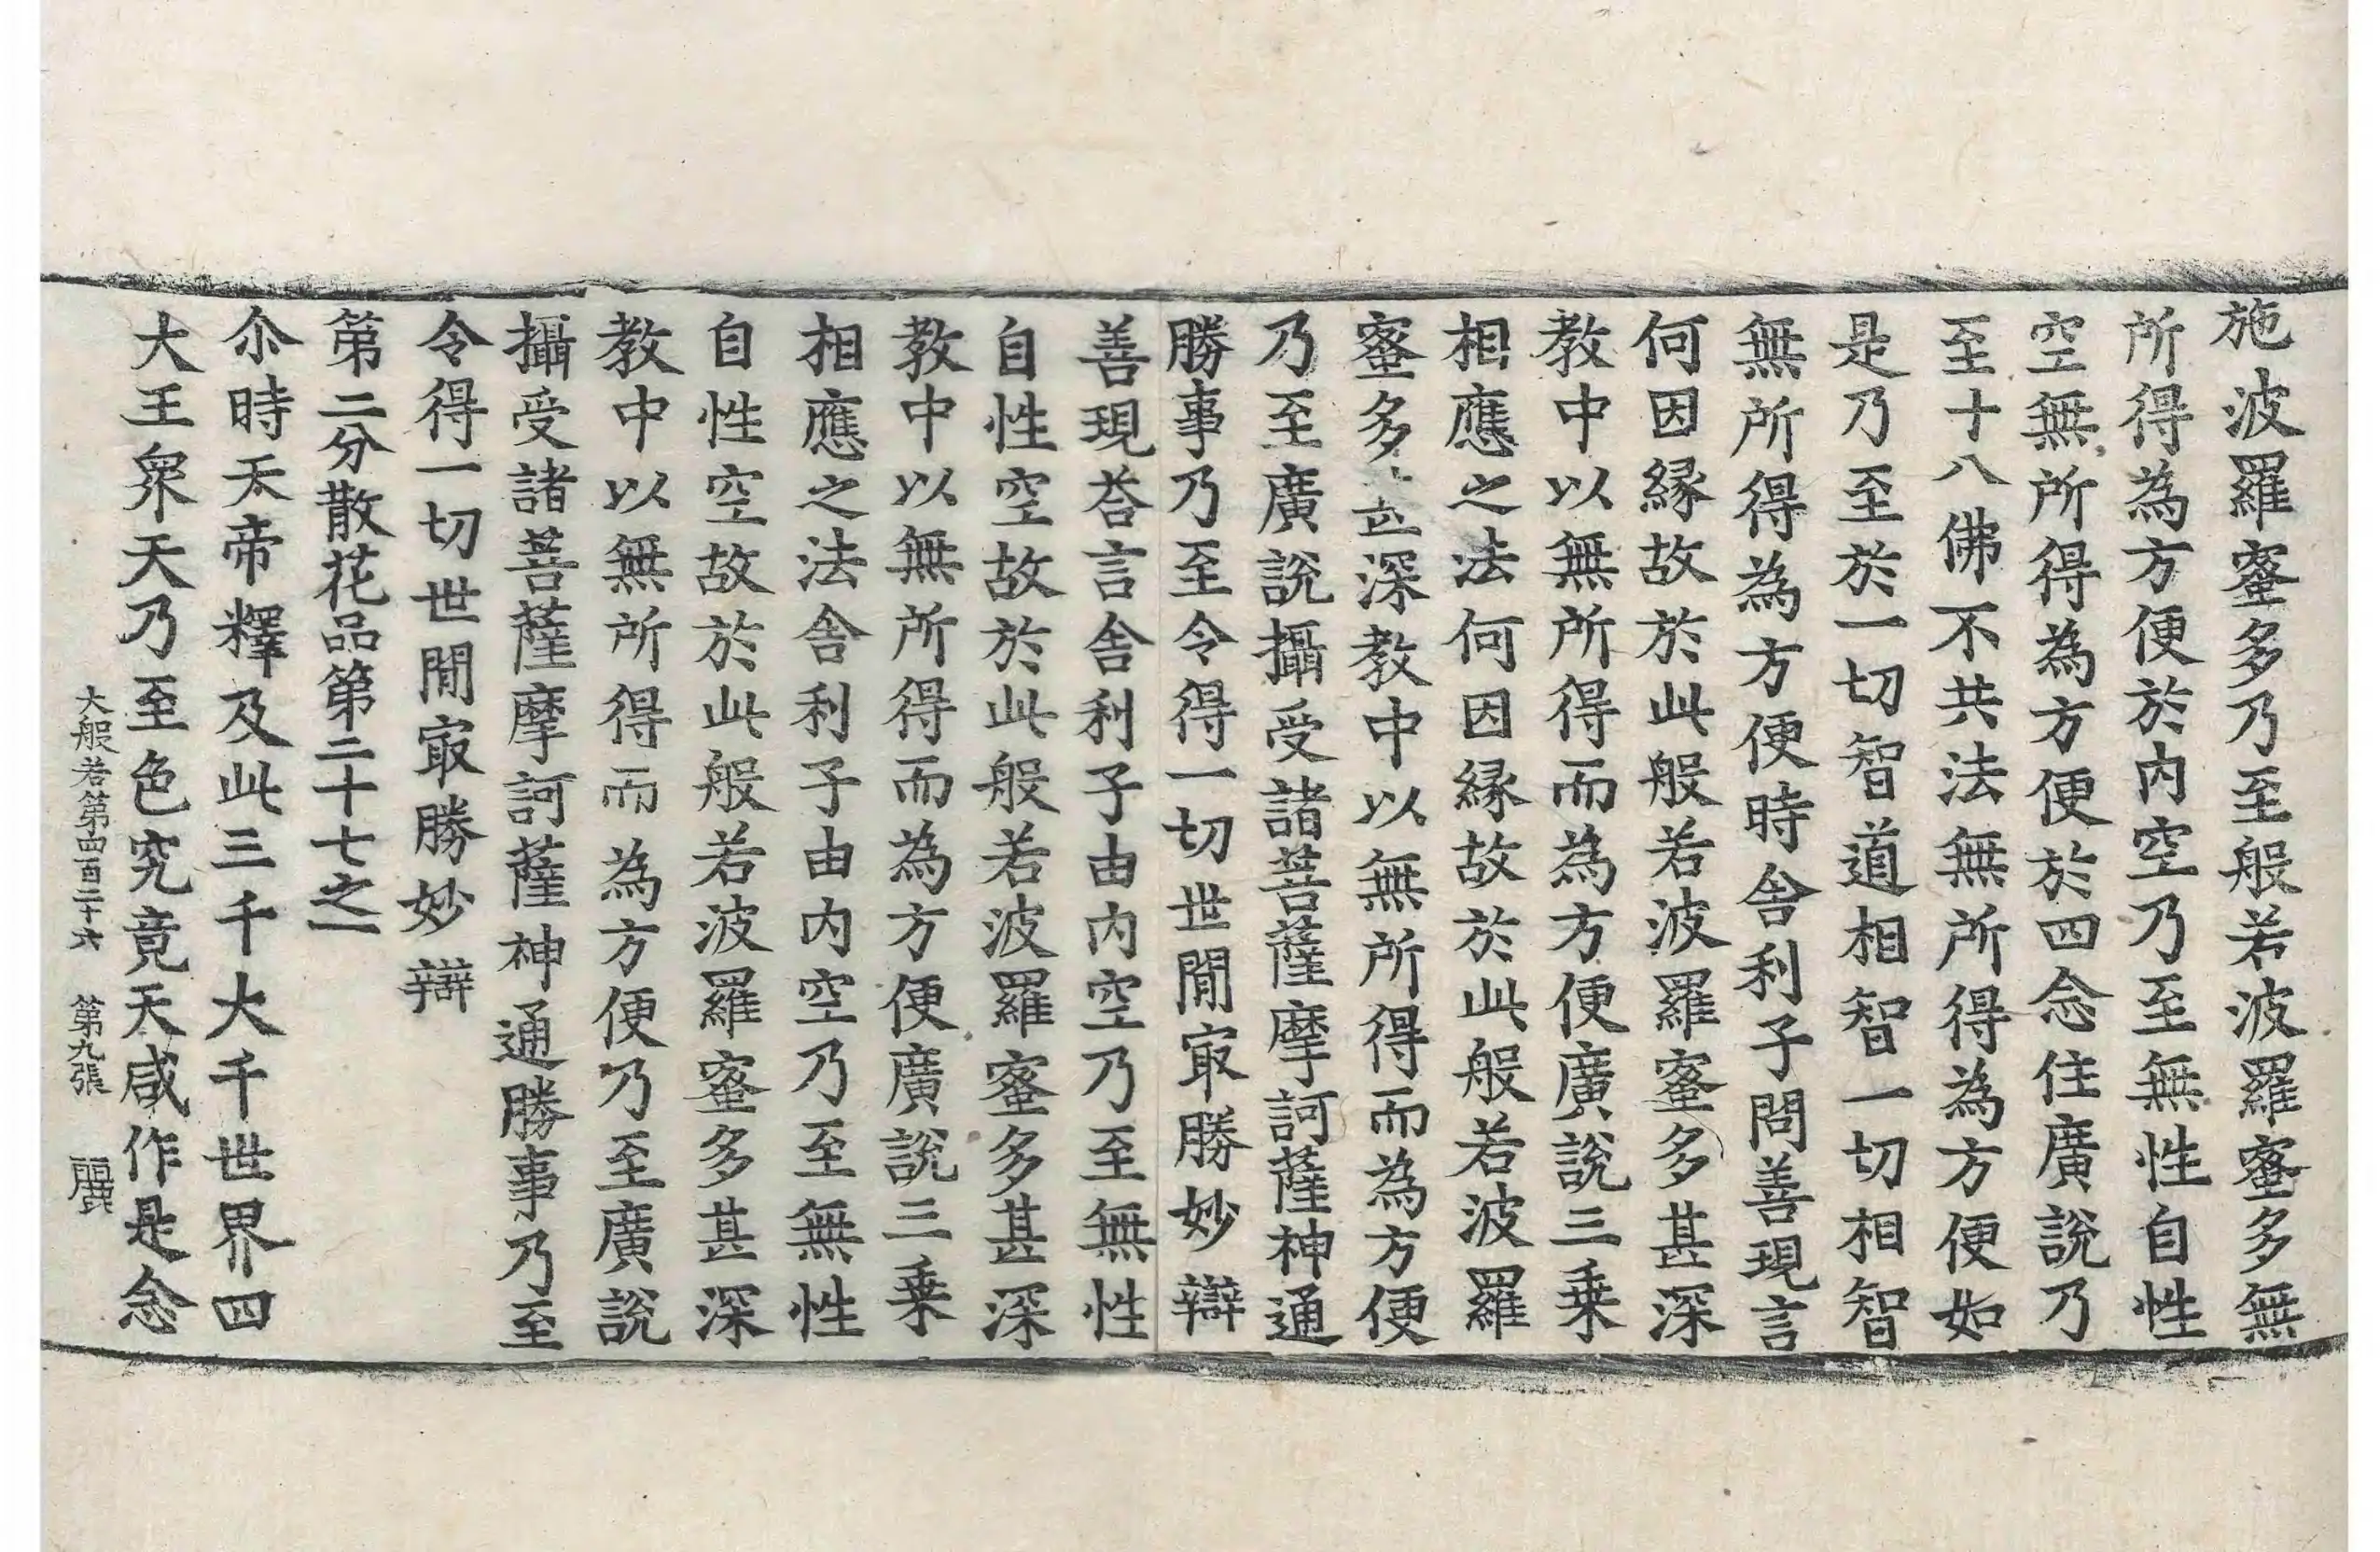 施波羅蜜多乃至般若波羅蜜多無
所得為方便於内空乃至無性自性
空無所得為方便於四念住廣說乃
至十八佛不共法無所得為方便如
是乃至於一切智道相智一切相智
無所得為方便時舍利子問善現言
何因緣故於此般若波羅蜜多甚深
教中以無所得而為方便廣說三乗
相應之法何因緣故於此般若波羅
蜜多深教中以無所得而為方便
乃至廣說攝受諸菩薩摩訶薩神通
勝事乃至令得一切世閒㝡勝妙辯
善現荅言舍利子由内空乃至無性
自性空故於此般若波羅蜜多甚深
教中以無所得而為方便廣說三乗
相應之法舍利子由内空乃至無性
自性空故於此般若波羅蜜多甚深
教中以無所得而為方便乃至廣說
攝受諸菩薩摩訶薩神通勝事乃至
令得一切世閒㝡勝妙辯
第二分散花品第二十七之一
尒時天帝釋及此三千大千世界四
大王衆天乃至色究竟天咸作是念
大般若第四百二十六 第九張 麗